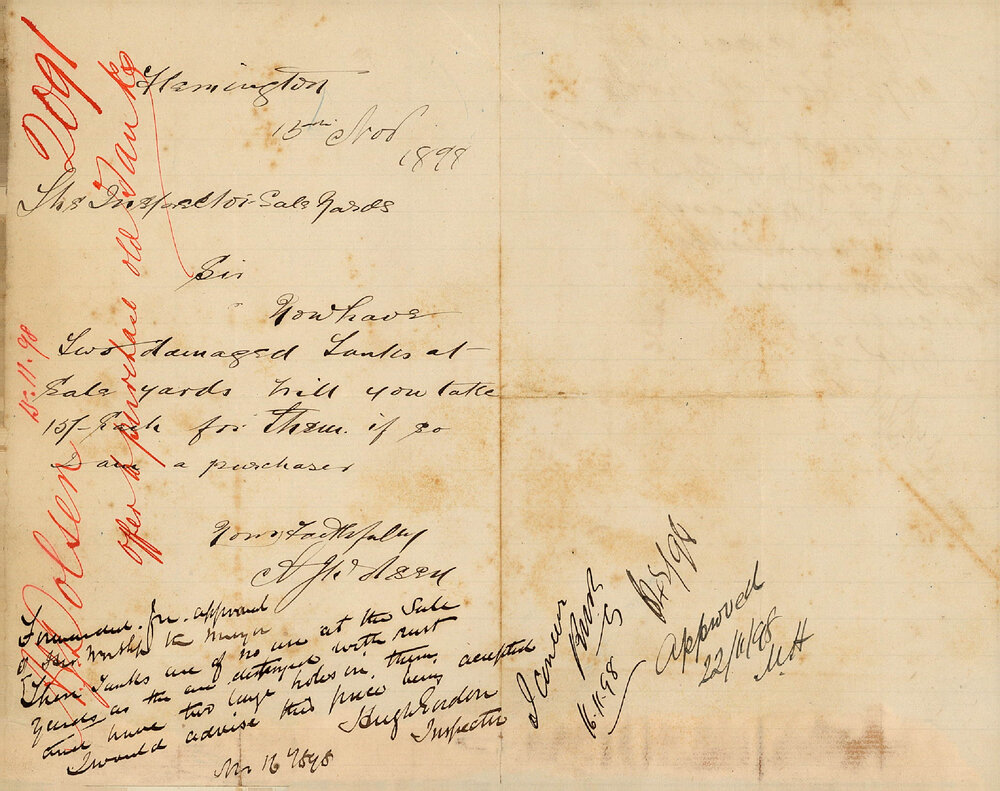 2091
offer to purchase old Tanks
15.11.98
Olsen
Flemington
15th Nov
1898
The Inspector Sale Yards
Sir
You have
Two damaged Tanks at
Sale yards will you take
15/- Each for them. if so
I am a purchaser
Yours Faithfully
Olsen
Forwarded for approval
of His Worship the Mayor
These Tanks are of no use at the Sale
Yards as the are destroyed with rust
and have two large holes in them,
I would advise this price being accepted
Hugh Gordon
Inspector
Nov 16th 1898
I concur
16.11.98
Approved
22/11/98